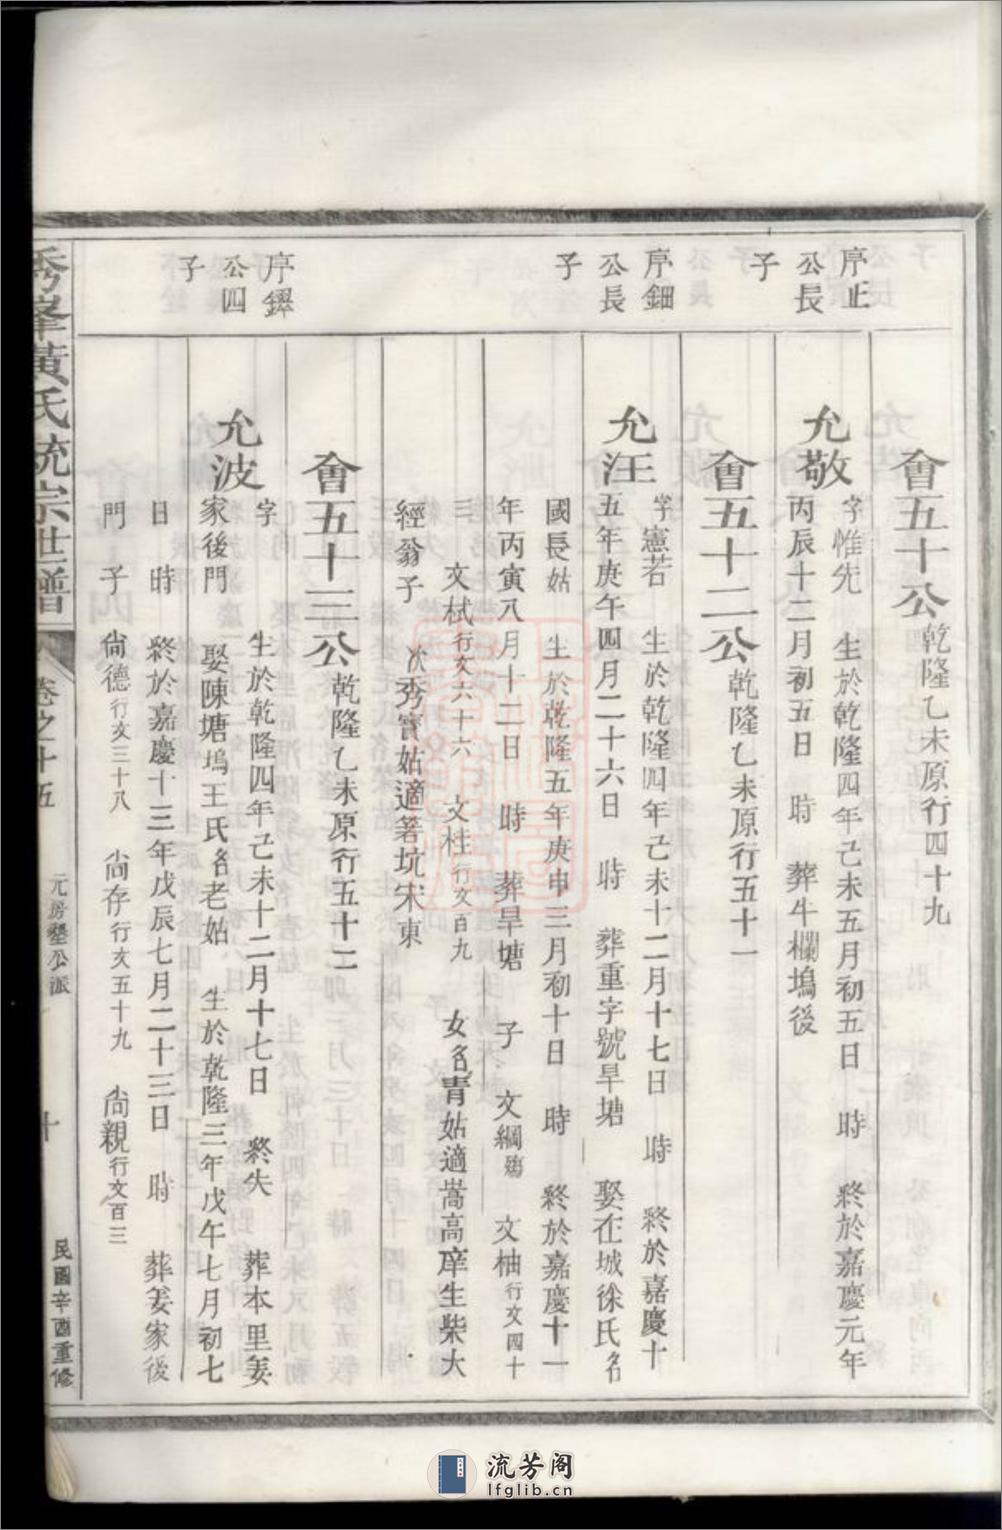 會五十公乾隆乙未原行四十九
序止
公長
子
允敬
字惟先　生於乾隆四年己未五月初五日　時　終於嘉慶元年
丙辰十二月初五日　時　葬牛欄塢後
會五十二公乾隆乙未原行五十一
序鈿
公長
子
允汪
字憲若　生於乾隆四年己未十二月十七日　時　終於嘉慶十
五年庚午四月二十六日　時　葬重字號旱塘　娶在城徐氏名
國長姑　生於乾隆五年庚申三月初十日　時　終於嘉慶十一
年丙寅八月十二日　時　葬旱塘　子　文綱殤　文柚行文四十
三　文栻行文六十六　文柱行文百九　女名青姑適嵩高庠生柴大
經翁子　次秀寳姑適箬坑宋東
會五十三公乾隆乙未原行五十二
序鐸
公四
子
允波
字　生於乾隆四年己未十二月十七日　終失　葬本里姜
家後門　娶陳塘塢王氏名老姑　生於乾隆三年戊午七月初七
日　時　終於嘉慶十三年戊辰七月二十三日　時　葬姜家後
門　子　尙德行文三十八　尙存行文五十九　尙親行文百三
秀峯黃氏統宗世譜　卷之十五　元房墾公派　十　民國辛酉重修
流芳阁
lfglib.cn